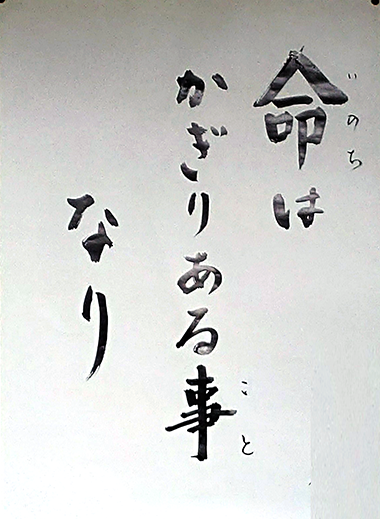 命は
いのち
かぎりある事
こと
なり